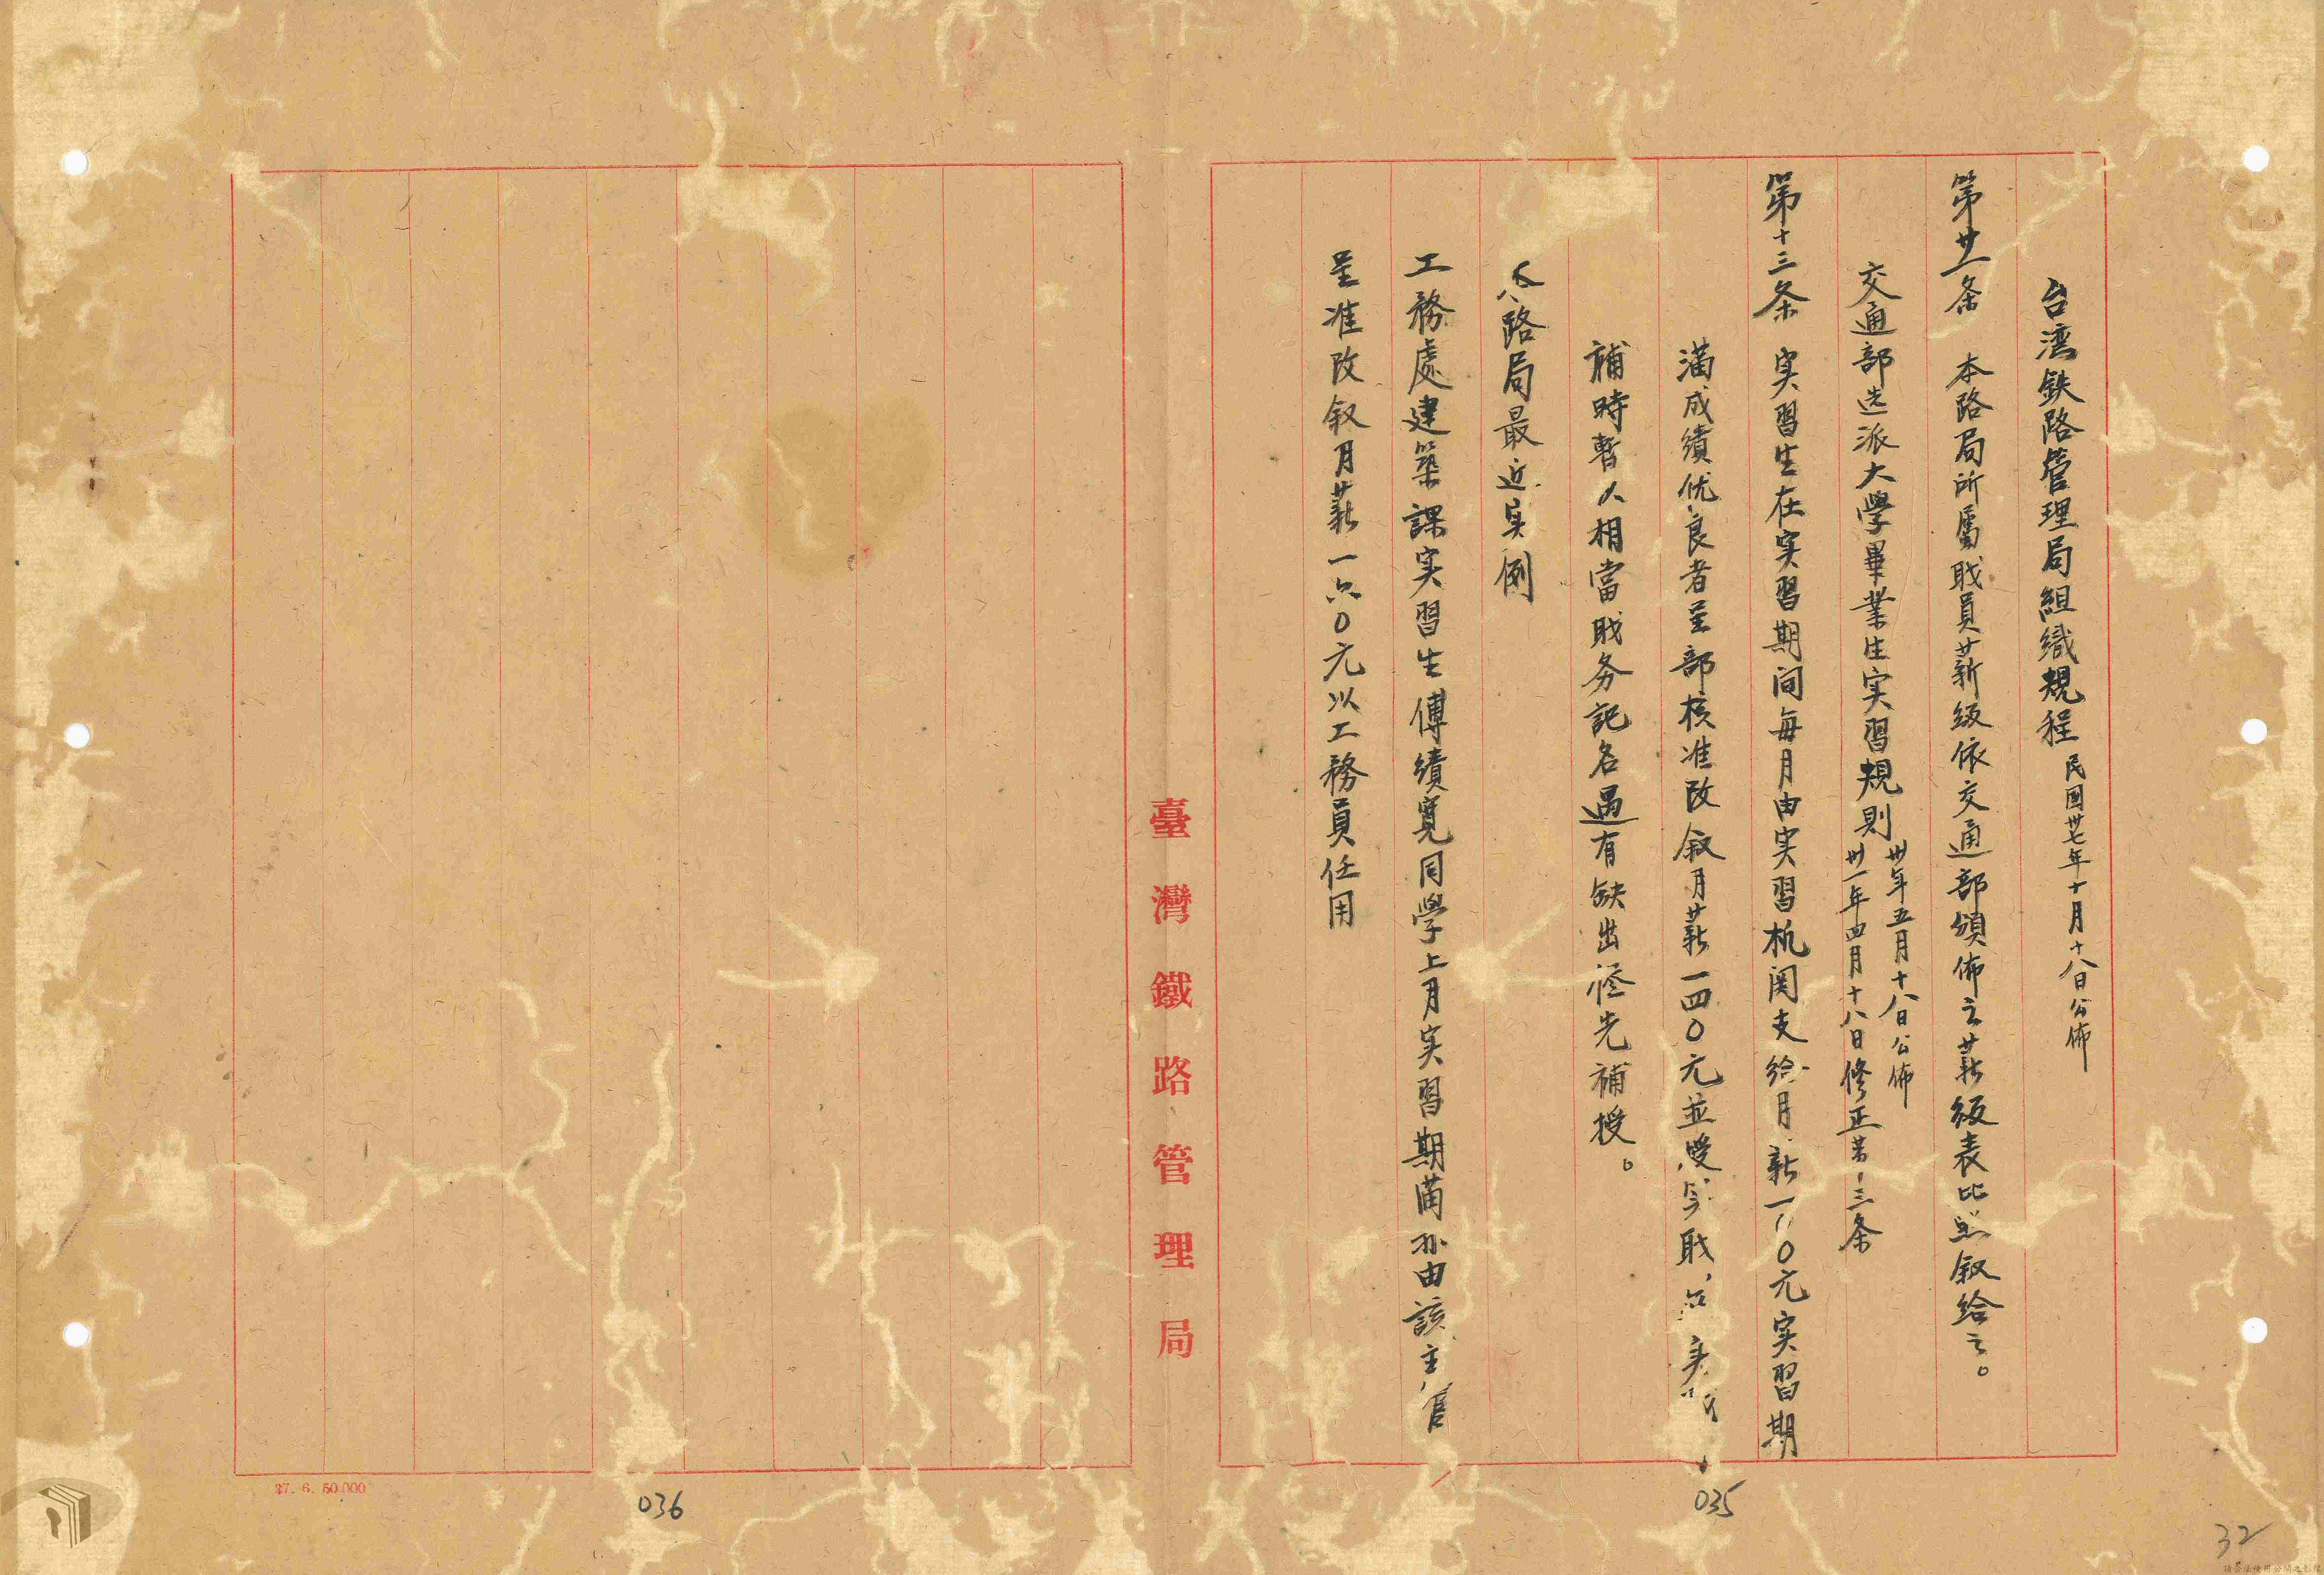 台湾鉄路管理局組織規程 民國卅七年十月十八日公佈
第廿一条 本路局所屬戝員薪級依交通部頒佈之薪級表比照叙給之。
交通部选派大學畢業生实習規則 卅年五月十八日公佈
卅一年四月十八日修正 第十三条
第十三条 实習生在实習期间每月由实習机関支給月薪一 0元实習期
滿成績优良者呈部核准改叙月薪一四0元並
補時暫以相當戝务記名遇有缺出儘先補授。
路局最近具例
工務處建築課实習生傅績寬同學上月实習期滿 由該主管
呈准改叙月薪一六0元以工務員任用
臺灣鐵路管理局
37. 6. 50.000
036
035
32